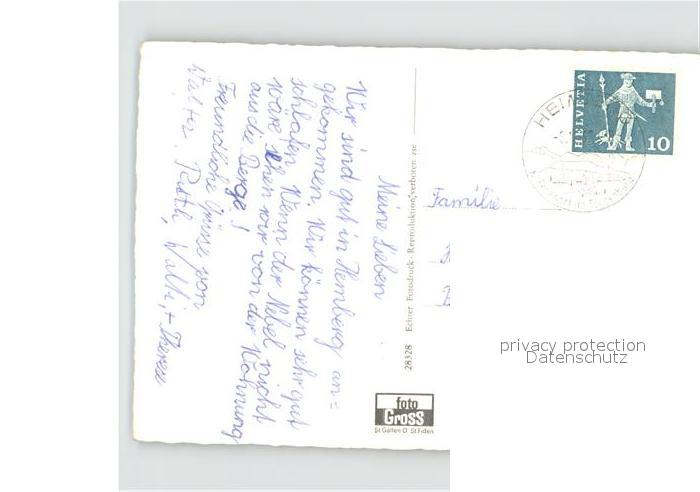 Meine Lieben
Wir sind gut in Hemberg an=
gekommen. Wir können sehr gut
schlafen. Wenn der Nebel nicht
wäre sehen wir von der Wohnung
aus die Berge!
Freundliche Grüsse von
Walter, Rösli, Willi, + Therese
28328 Echter Fotodruck - Reproduktion verboten
foto
Gross
St Gallen O St Fiden
Familie
HELVETIA
10
privacy protection
Datenschutz